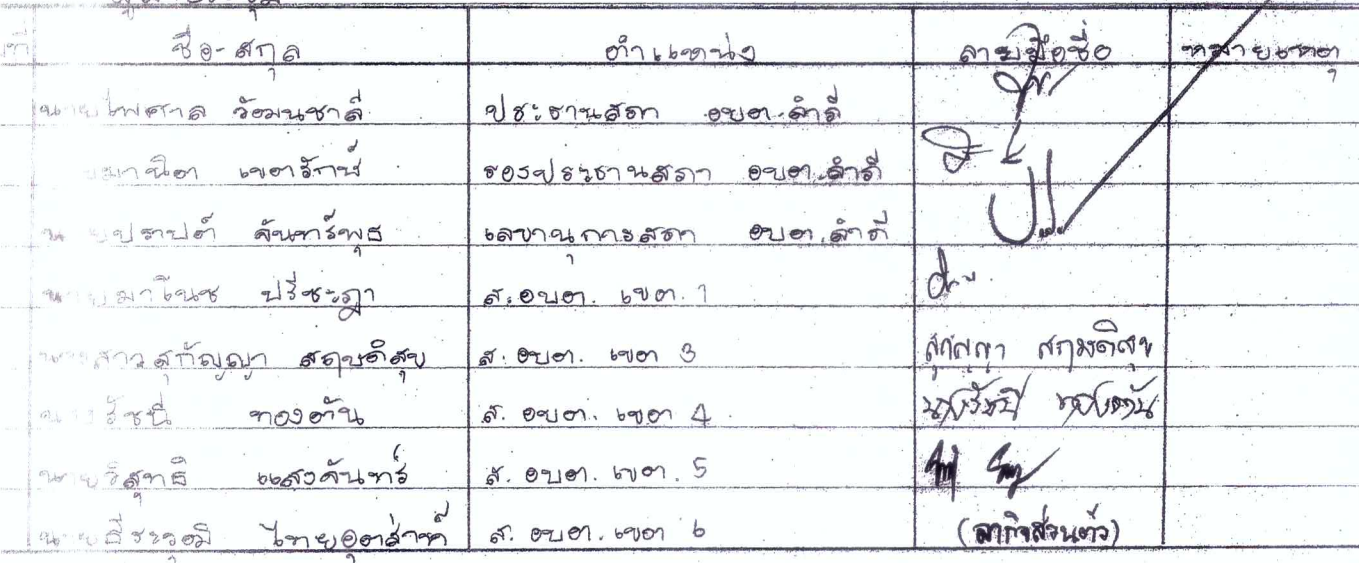 ที่ ชื่อ-สกุล ตำแหน่ง ลายมือชื่อ หมายเหตุ
นายไพศาล ร้อมนชาลี ประธานสภา อบต.ลำภี
เขตรักษ์ รองประธานสภา อบต.ลำภี
นายปราปต์ จันทร์พุธ เลขานุการสภา อบต.ลำภี
นายมาโนช ปรีชะฎา ส.อบต. เขต. 1
นางสาวสุกัญญา สฤษดิสุข ส. อบต. เขต 3 สุกัญญา สฤษดิสุข
นางรัชนี ทองตัน ส. อบต. เขต 4 นางรัชนี ทองตัน
นายวิสุทธิ แสงจันทร์ ส. อบต. เขต. 5
นายธีระวุฒิ ไทยอุตส่าห์ ส. อบต. เขต 6 (ลากิจส่วนตัว)